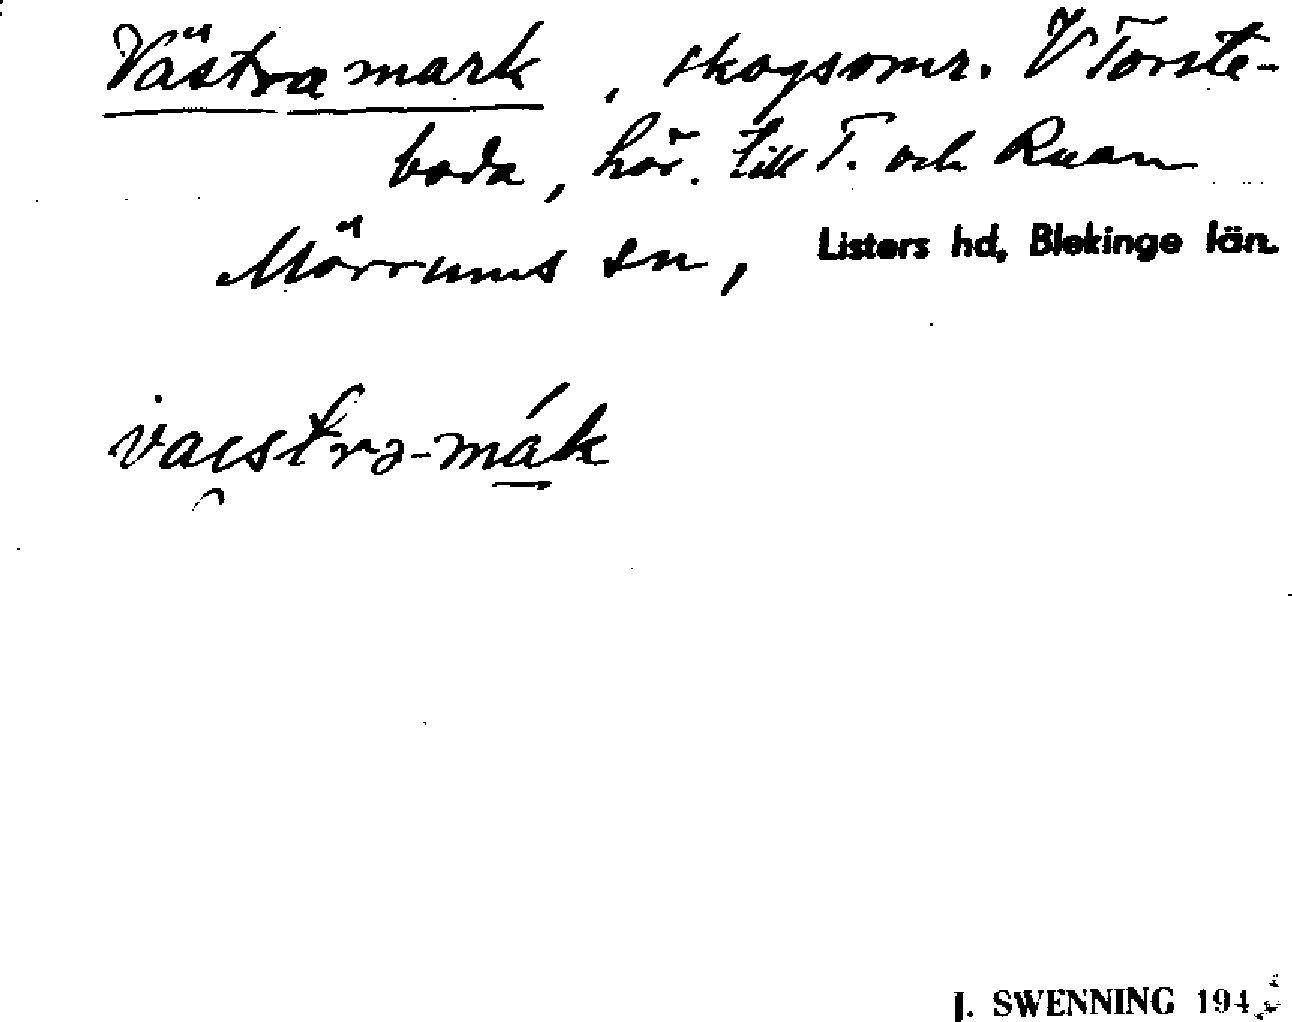 Västra mark, skogsomr. V Torste-
boda, hör. till T. och Ruan
Mörrums sn, Listers hd, Blekinge län.
vaistrə-mák
J. SWENNING 194